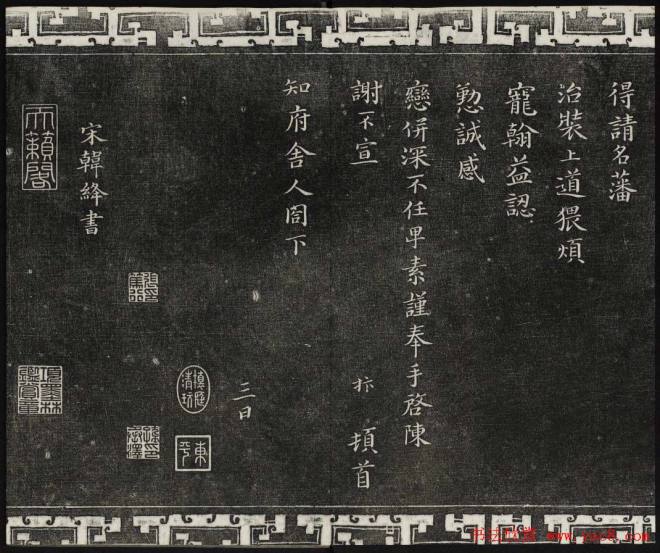 得請名藩
治裝上道猥煩
寵翰益認
懃誠感
戀併深不任卑素謹奉手啓陳
謝不宣 頓首
知府舍人閤下
三日
宋韓絳書
天籟閣
項墨林鑑賞章
東平